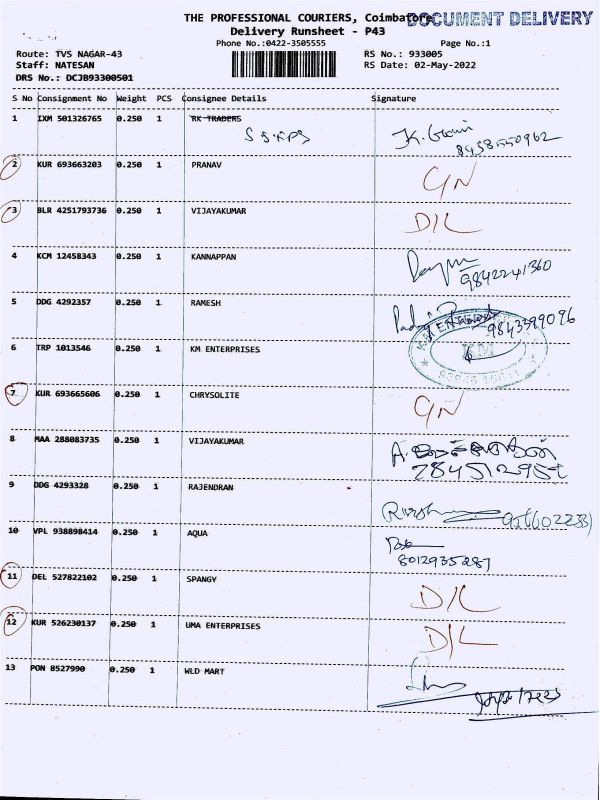 THE PROFESSIONAL COURIERS, Coimbatore
DOCUMENT DELIVERY
Delivery Runsheet - P43
Phone No.:0422-3505555
Page No.:1
Route: TVS NAGAR-43
RS No.: 933005
Staff: NATESAN
RS Date: 02-May-2022
DRS No.: DCJB93300501
S No Consignment No Weight PCS Consignee Details Signature
1 IXM 501326765 0.250 1 RK TRADERS
8438550962
2 KUR 693663203 0.250 1 PRANAV
3 BLR 4251793736 0.250 1 VIJAYAKUMAR D/L
4 KCM 12458343 0.250 1 KANNAPPAN
9842241360
5 DDG 4292357 0.250 1 RAMESH
9843399096
6 TRP 1013546 0.250 1 KM ENTERPRISES
7 KUR 693665606 0.250 1 CHRYSOLITE
8 MAA 288083735 0.250 1 VIJAYAKUMAR
9 DDG 4293328 0.250 1 RAJENDRAN
10 VPL 938898414 0.250 1 AQUA
8012935287
11 DEL 527822102 0.250 1 SPANGY D/L
12 KUR 526230137 0.250 1 UMA ENTERPRISES D/L
13 PON 8527990 0.250 1 WLD MART